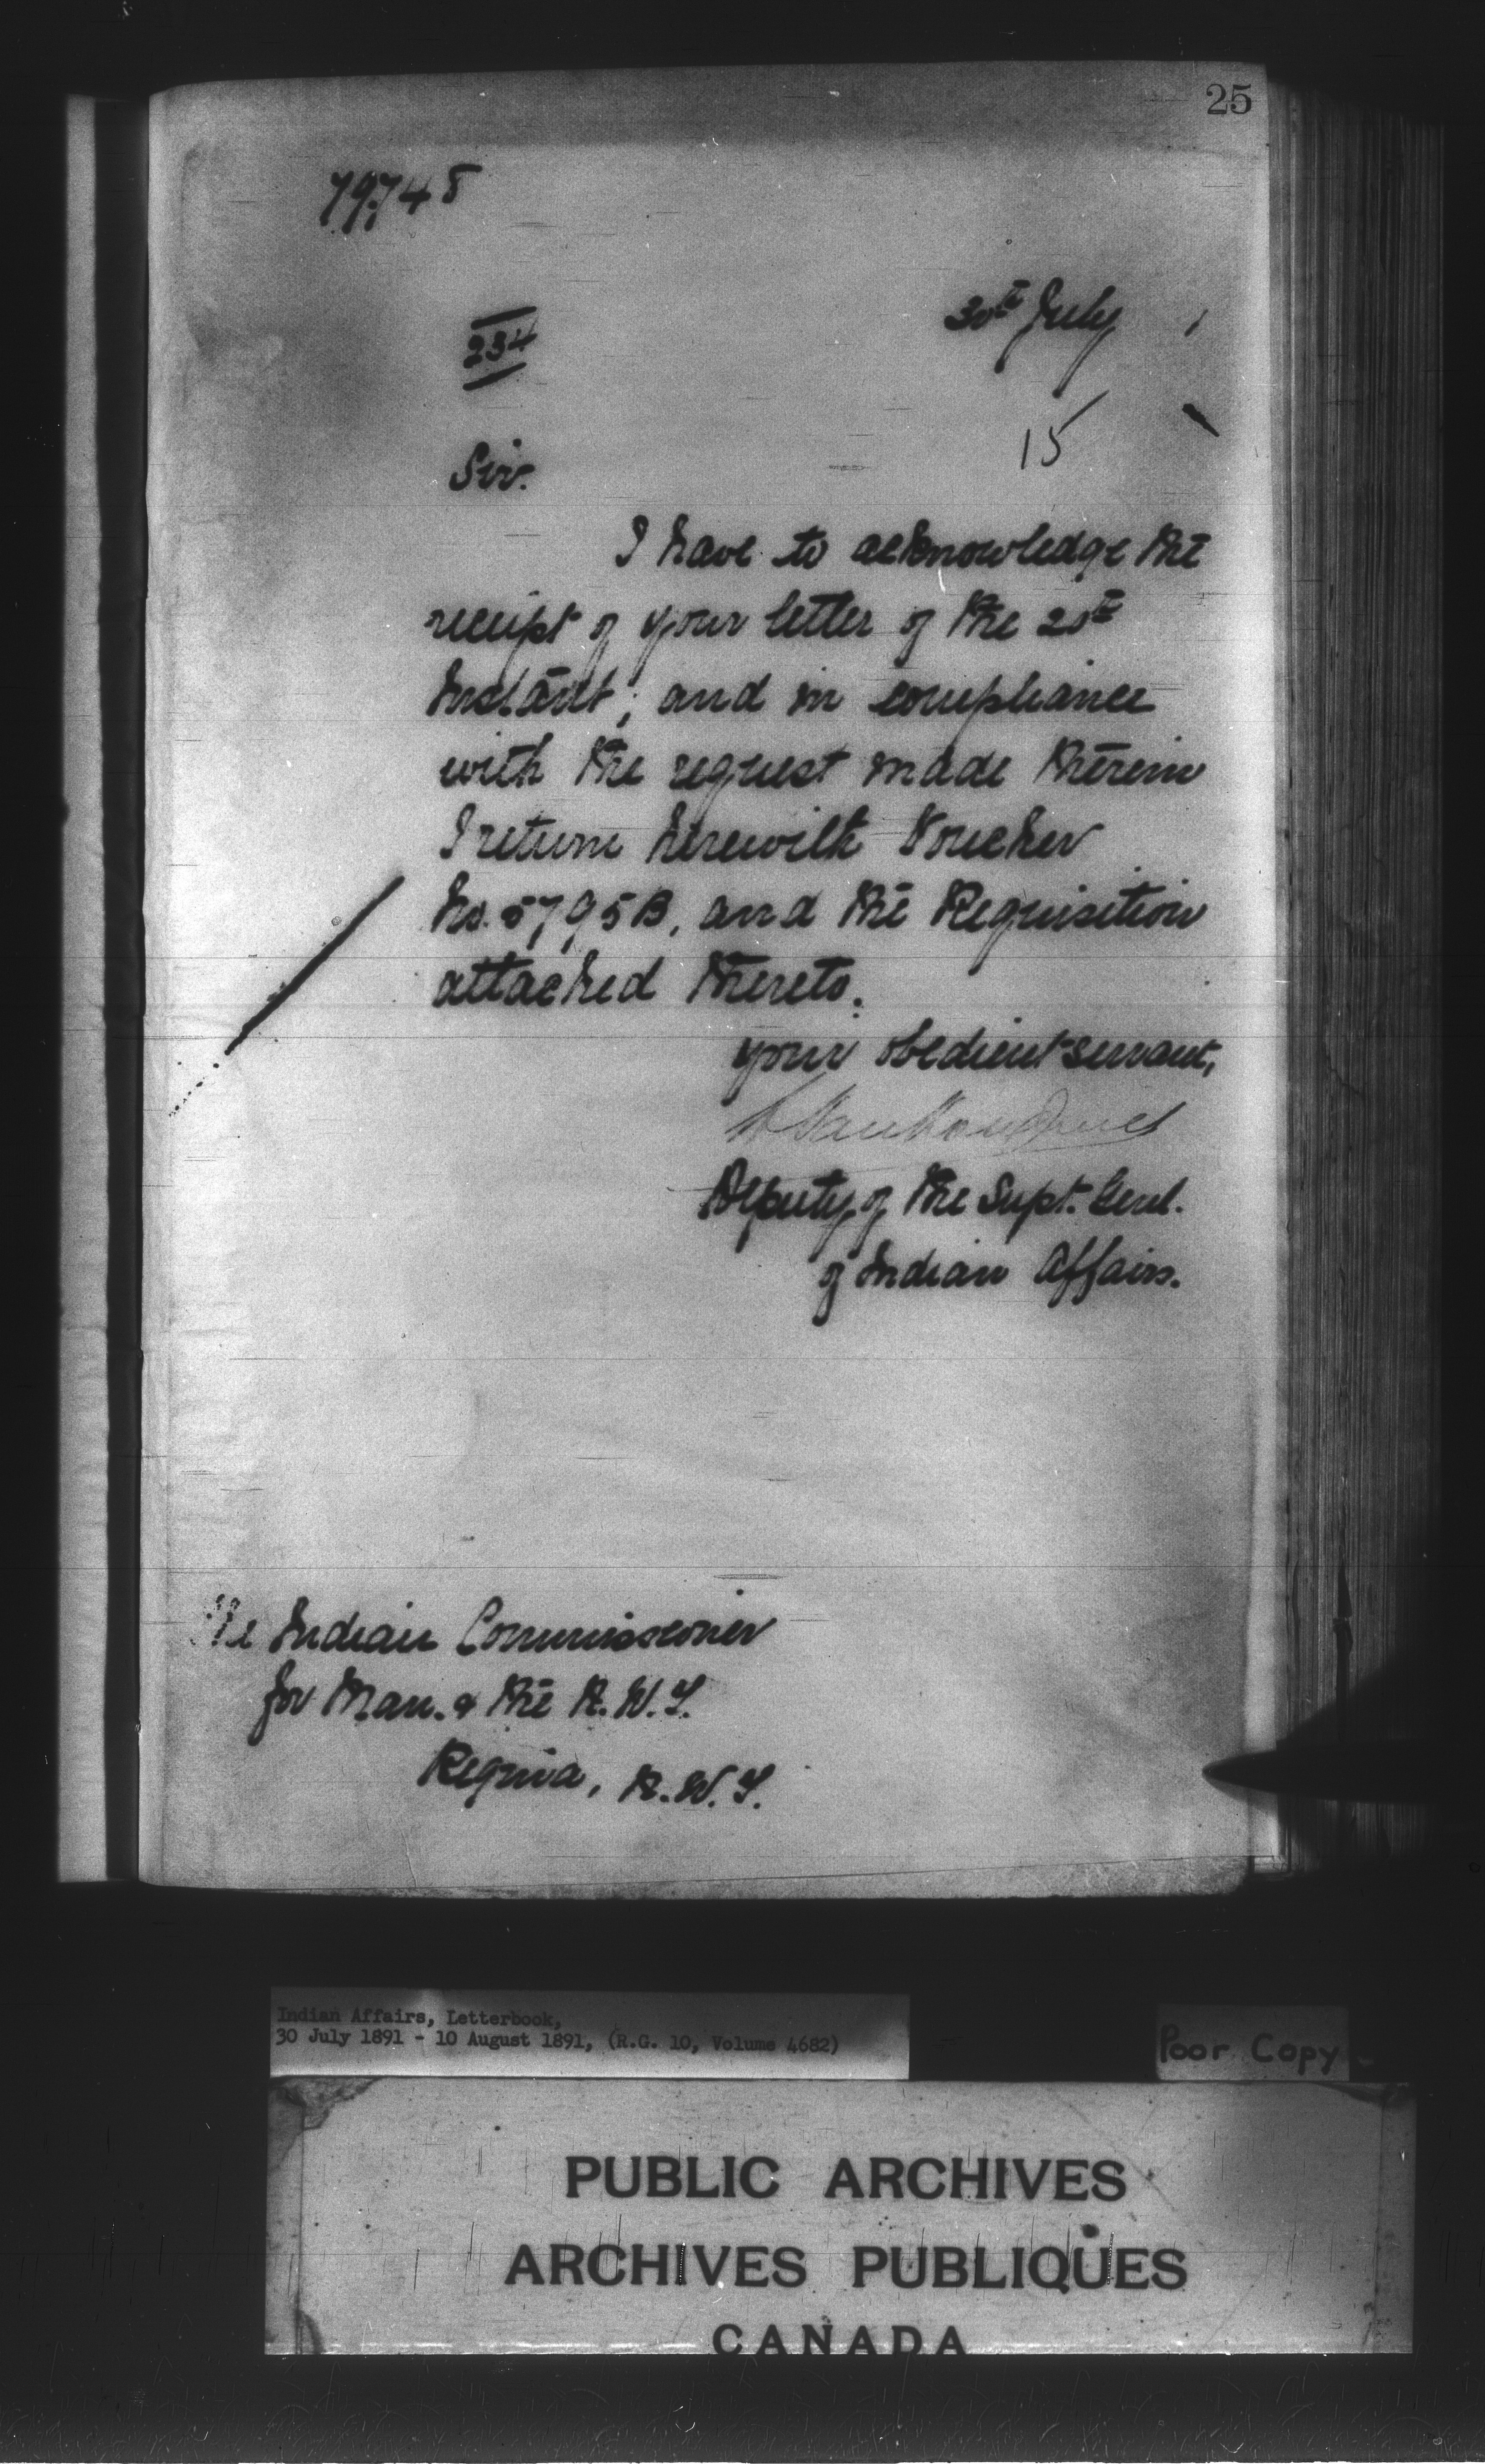 25
79748
234
30th July 1
15
Sir.
I have to acknowledge the
receipt of your letter of the 20th
Instant; and in compliance
with the request made therein
I return herewith Voucher
No. 5795B, and the Requisition
attached thereto.
your obedient servant,
L Vankoughnet
Deputy of the Supt. Genl.
of Indian Affairs.
The Indian Commissioner
for Man. & the N.W.T.
Regina, N.W.T.
Indian Affairs, Letterbook,
30 July 1891 - 10 August 1891, (R.G. 10, Volume 4682)
Poor Copy
PUBLIC ARCHIVES
ARCHIVES PUBLIQUES
CANADA